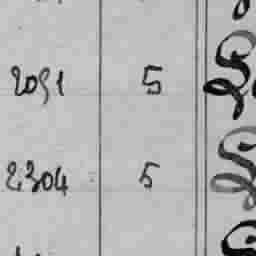 2051 5
2304 5